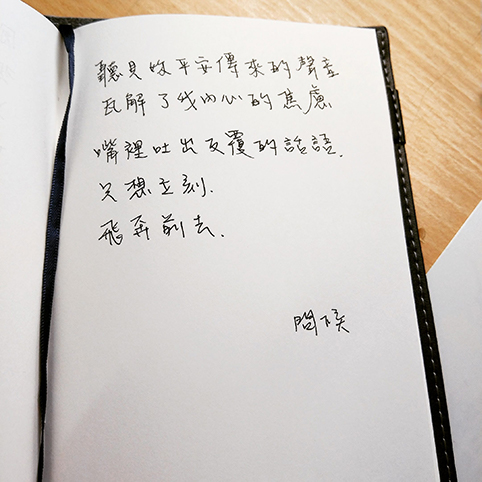 聽見妳平安傳來的聲音
瓦解了我內心的焦慮
嘴裡吐出反覆的話語.
只想立刻.
飛奔前去.
問候